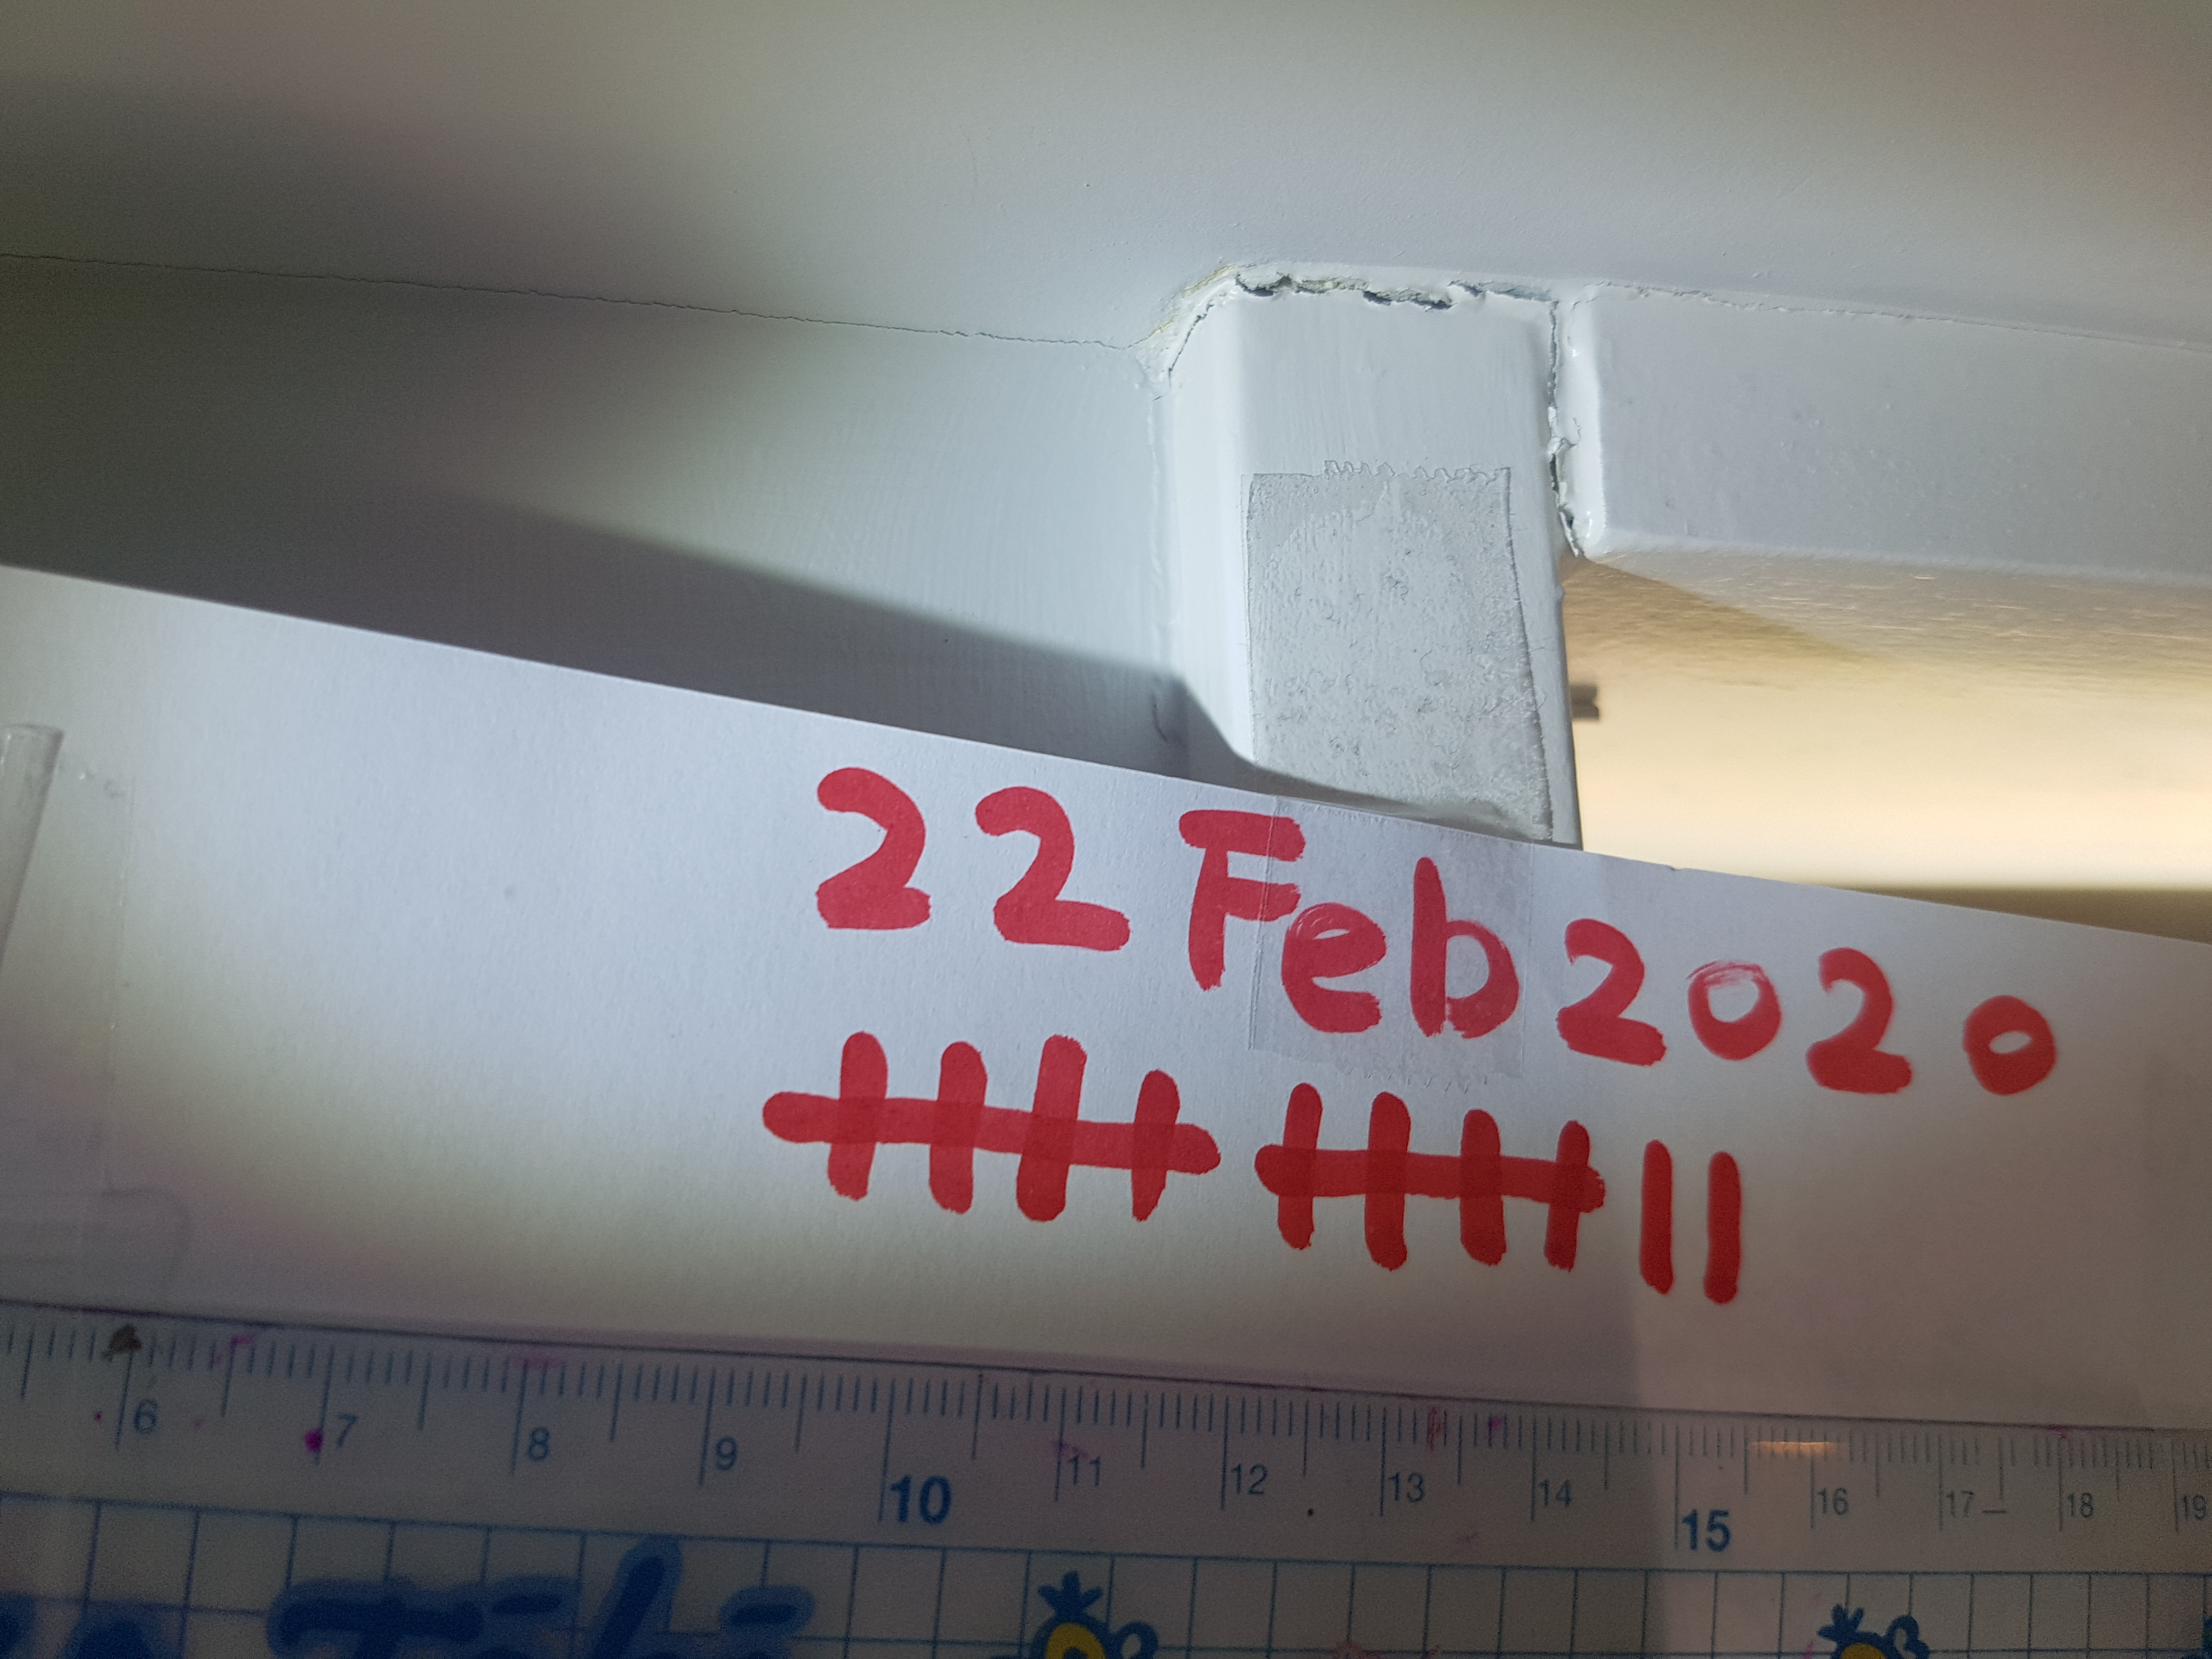 22 Feb 2020
6 7 8 9 10 11 12 13 14 15 16 17 18 19